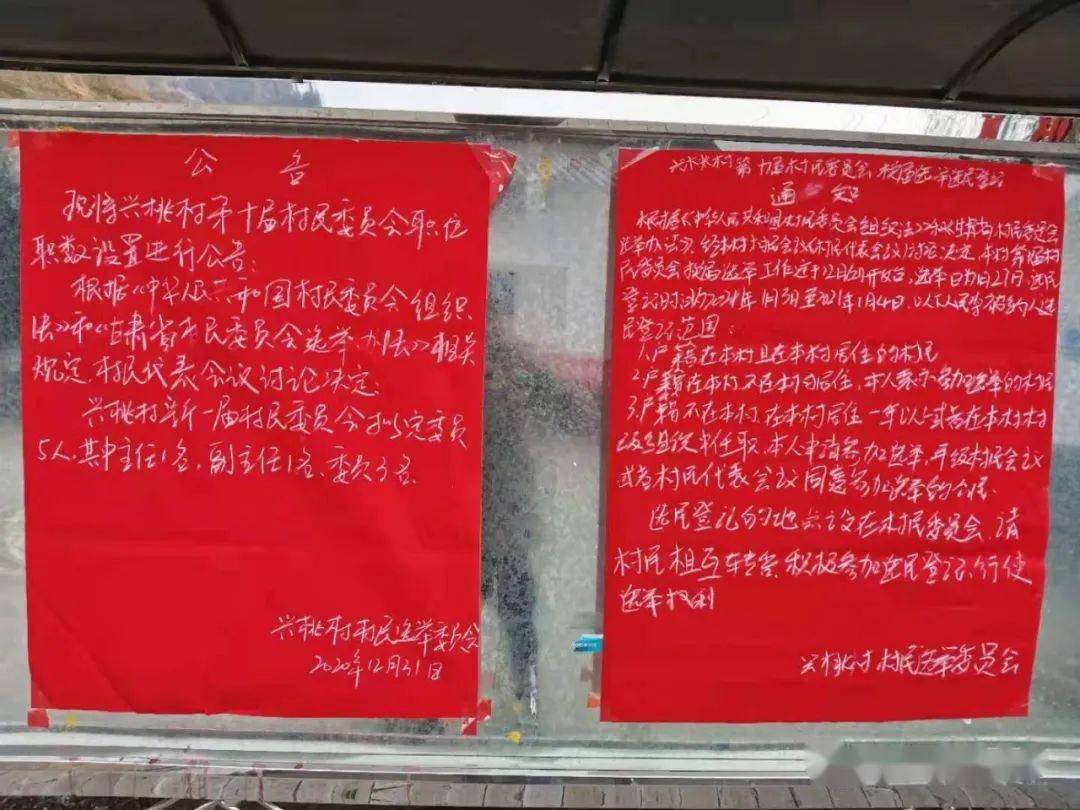 公告
现将兴桃村第十届村民委员会职位
职数设置进行公告：
根据《中华人民共和国村民委员会组织
法》和《甘肃省村民委员会选举办法》相关
规定，村民代表会议讨论决定：
兴桃村新一届村民委员会拟定委员
5人，其中主任1名，副主任1名，委员3名。
兴桃村村民选举委员会
2020年12月31日
兴桃村第十届村民委员会换届选举选民登记
通知
根据《中华人民共和国村民委员会组织法》和《甘肃省村民委员会
选举办法》，经本村村民会议（村民代表会议）讨论决定，本村第十届村
民委员会换届选举工作近于12月开始，选举日为1月27日，选民
登记时间为2021年1月3日至2021年1月4日，以下人员应被列入选
民登记范围：
1.户籍在本村且在本村居住的村民
2.户籍在本村，不在本村居住，本人表示参加选举的村民
3.户籍不在本村，在本村居住一年以上或者在本村村
级组织中任职，本人申请参加选举，并经村民会议
或者村民代表会议同意参加选举的公民。
选民登记的地点设在村民委员会，请
村民相互转告，积极参加选民登记，行使
选举权利
兴桃村村民选举委员会